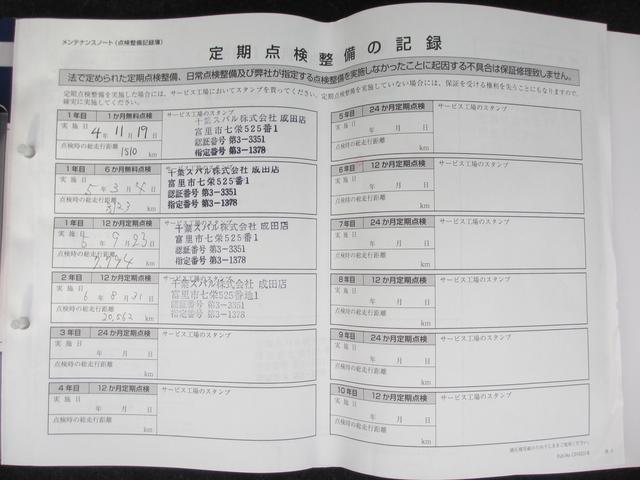 メンテナンスノート(点検整備記録簿)
定期点検整備の記録
法で定められた定期点検整備、日常点検整備及び弊社が指定する点検整備を実施しなかったことに起因する不具合は保証修理致しません。
定期点検整備を実施した場合には、サービス工場においてスタンプを貰ってください。定期点検整備を実施していない場合には、保証を受ける権利を失うこともなりますので、
確実に実施してください。
1年目 1か月無料点検 サービス工場のスタンプ
実施日
4年 11月 19日
点検時の総走行距離
1510 km
千葉スバル株式会社 成田店
富里市七栄525番1
認証番号 第3-3351
指定番号 第3-1378
1年目 6か月無料点検 サービス工場のスタンプ
実施日
5年 3月 日
点検時の総走行距離
km
千葉スバル株式会社 成田店
富里市七栄525番1
認証番号 第3-3351
指定番号 第3-1378
1年目 12か月定期点検 サービス工場のスタンプ
実施日
年 9月 23日
点検時の総走行距離
7,774 km
千葉スバル株式会社 成田店
富里市七栄525番1
認証番号 第3-3351
指定番号 第3-1378
2年目 12か月定期点検 サービス工場のスタンプ
実施日
6年 8月 31日
点検時の総走行距離
20,562 km
千葉スバル株式会社 成田店
富里市七栄525番地1
認証番号 第3-3351
指定番号 第3-1378
3年目 24か月定期点検 サービス工場のスタンプ
実施日
年 月 日
点検時の総走行距離
km
4年目 12か月定期点検 サービス工場のスタンプ
実施日
年 月 日
点検時の総走行距離
km
5年目 24か月定期点検 サービス工場のスタンプ
実施日
年 月 日
点検時の総走行距離
km
6年目 12か月定期点検 サービス工場のスタンプ
実施日
年 月 日
点検時の総走行距離
km
7年目 24か月定期点検 サービス工場のスタンプ
実施日
年 月 日
点検時の総走行距離
km
8年目 12か月定期点検 サービス工場のスタンプ
実施日
年 月 日
点検時の総走行距離
km
9年目 24か月定期点検 サービス工場のスタンプ
実施日
年 月 日
点検時の総走行距離
km
10年目 12か月定期点検 サービス工場のスタンプ
実施日
年 月 日
点検時の総走行距離
km